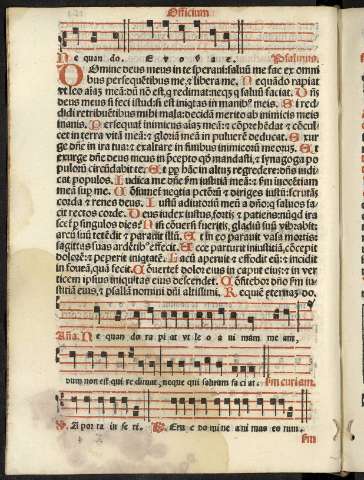 Officium
Ne quan do. E v o v a e. Psalmus.
Domine deus meus in te speraui: saluũ me fac ex omni
bus persequẽtibus me, et libera me. Nequãdo rapiat
vt leo aĩaʒ meã: dũ nõ est, q̃ redimat neqʒ q̃ saluũ faciat. Dñe
deus meus si feci istud: si est iniqtas in manibꝰ meis. Si red
didi retribuẽtibus mihi mala: decidã merito ab inimicis meis
inanis. Persequať inimicus aĩaʒ meã: et cõprehẽdat et cõcul
cet in terra vitã meã: et gloriã meã in puluerẽ deducat. Exur
ge dñe in ira tua: et exaltare in finibus inimicoꝝ meoꝝ. Et
exurge dñe deus meus in p̃cepto qḋ mandasti, et synagoga po
puloꝝ circũdabit te. Et ꝓp hãc in altuʒ regredere: dñs iudi
cat populos. Iudica me dñe ẜm iustitiã meã: et ẜm inocẽtiam
meã sup me. Cõsumeť neqtia pctõꝝ: et diriges iustũ: scrutãs
corda et renes deus. Iustũ adiutoriũ meũ a dño: q̃ saluos fa
cit rectos corde. Deus iudex iustus, fortis et patiens: nũqd ira
sceť ꝑ singulos dies? Nisi cõuersi fueritis, gladiũ suũ vibrabit:
arcũ suũ tetẽdit et parauit illũ. Et in eo parauit vasa mortis
sagittas suas ardẽtibꝰ effecit. Ecce parturit iniustitiã, cõcepit
dolorẽ: et peperit iniqtatẽ. Lacũ aperuit et effodit eũ: et incidit
in foueã, quã fecit. Cõuerteť dolor eius in caput eius: et in ver
ticem ipsius iniquitas eius descendet. Cõfitebor dño ẜm iu
stitiã eius, et psallã nomini dñi altissimi. Requiẽ eternaʒ do.
Aña. Ne quan do ra pi at vt le o a ni mam me am,
dum non est qui re di mat, neque qui saluum fa ci at. ẜm curiam.
V. A por ta in fe ri. R. Eru e do mi ne ani mas eo rum.
ẜm